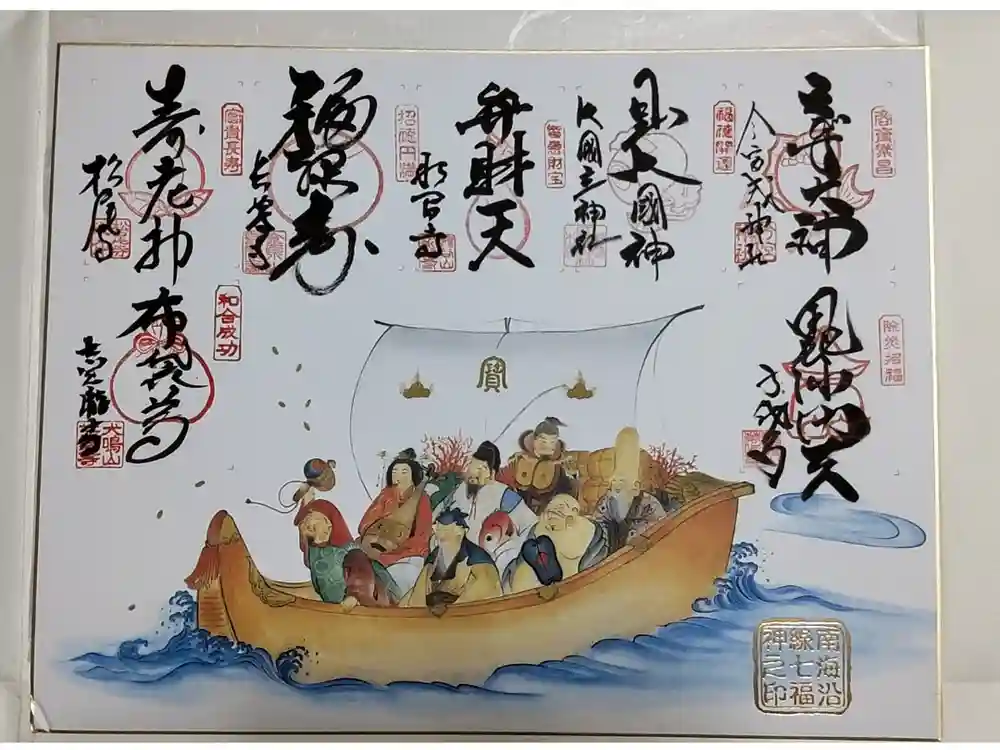 商賣繁昌
戎大神
今宮戎神社
福徳開運
大國主神社
智恵財宝
弁財天
水間寺
招徳円満
福禄寿
長慶寺
富貴長寿
寿老神
松尾寺
除災招福
毘沙門天
和合成功
布袋尊
犬鳴山
寶
南海沿
線七福
神之印